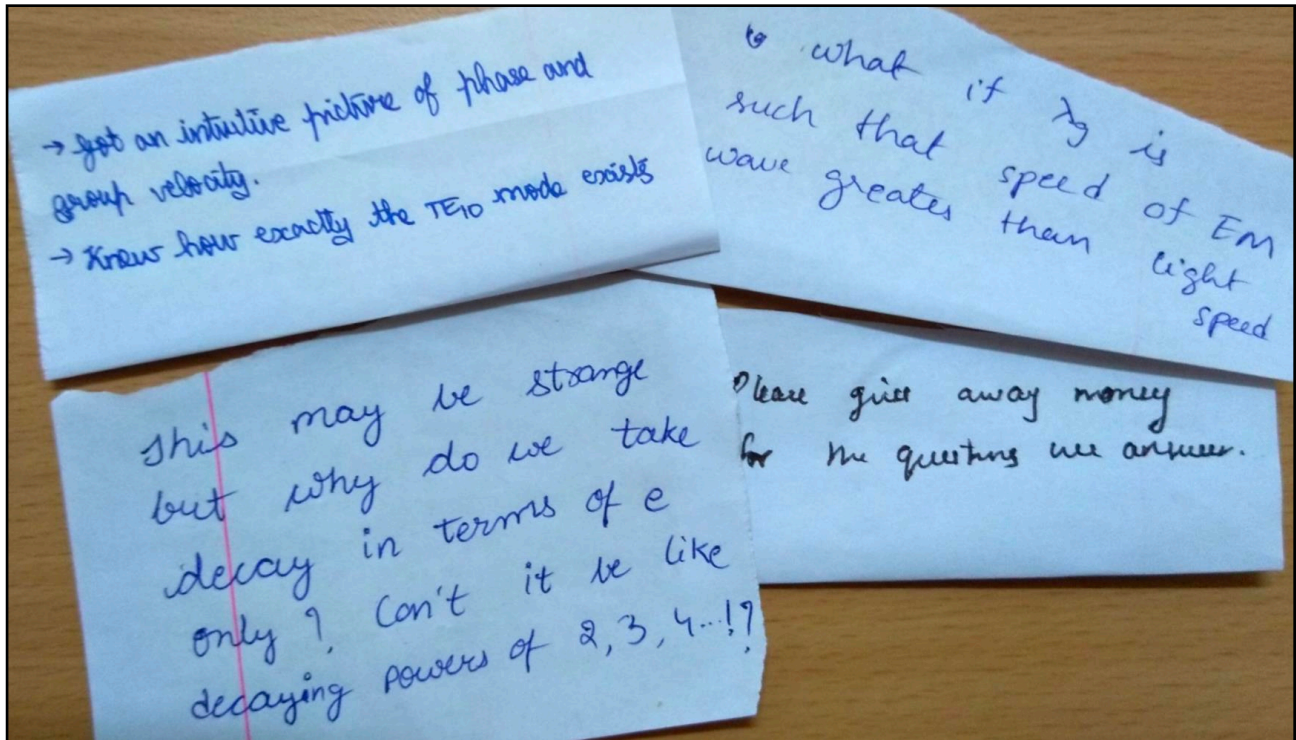 → got an intuitive picture of phase and
group velocity.
→ Knew how exactly the TE10 mode exists
what if λg is
such that speed of EM
wave greater than light
speed
This may be strange
but why do we take
decay in terms of e
only? Can't it be like
decaying powers of 2, 3, 4...!?
Please give away money
for the questions we answer.